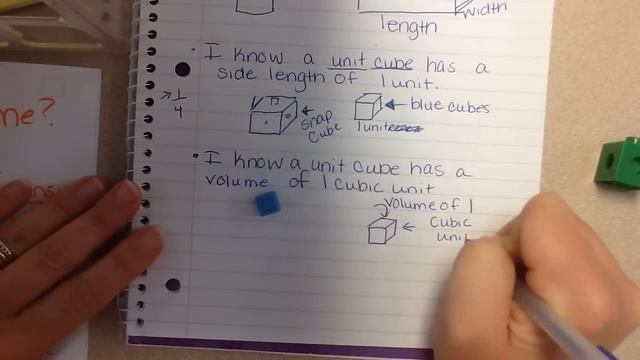 width
length
• I know a unit cube has a
side length of 1 unit.
→ 1/4
snap
cube
blue cubes
1 unit
• I know a unit cube has a
volume of 1 cubic unit
volume of 1
cubic
unit
me?